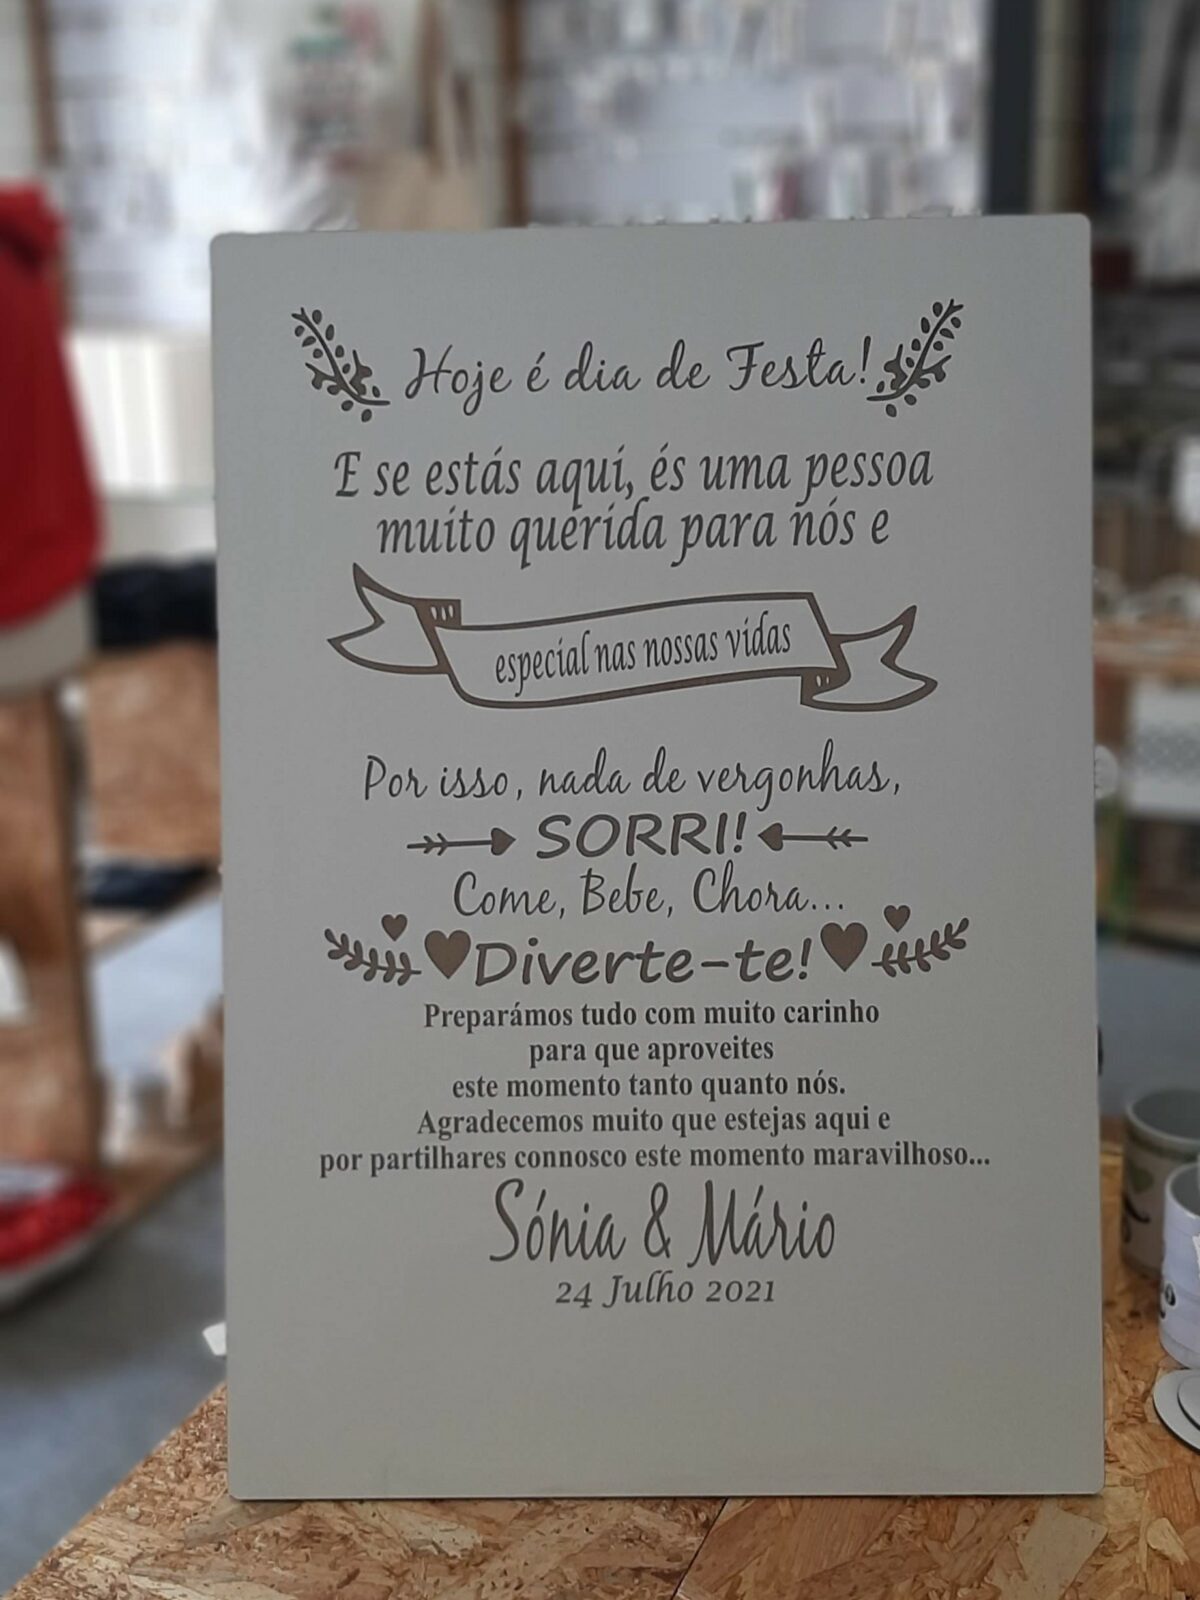 Hoje é dia de Festa!
E se estás aquí, és uma pessoa
muito querida para nós e
especial nas nossas vidas
Por isso, nada de vergonhas,
SORRI!
Come, Bebe, Chora...
Diverte-te!
Preparámos tudo com muito carinho
para que aproveites
este momento tanto quanto nós.
Agradecemos muito que estejas aqui e
por partilhares connosco este momento maravilhoso...
Sónia & Mário
24 Julho 2021